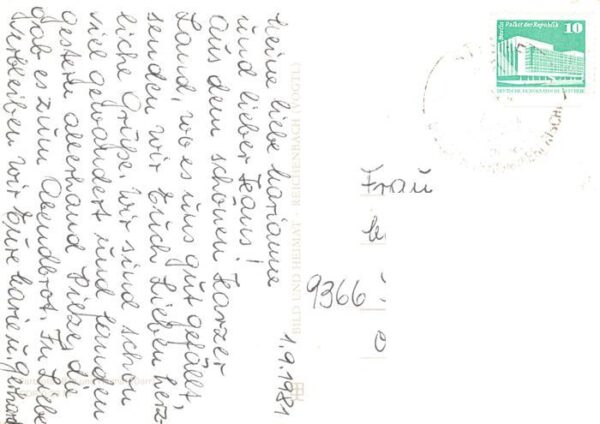 Meine liebe Marianne
und lieber Hans!
Aus dem schönen Harzer
Land, wo es uns gut gefällt,
senden wir Euch Lieben herz-
liche Grüße. Wir sind schon
viel gewandert und fanden
gestern allerhand Pilze, die
gab es zum Abendbrot. In Liebe
verbleiben wir Eure Marie u. Gerhard
1.9.1981
BILD UND HEIMAT · REICHENBACH (VOGTL)
Berlin Palast der Republik
10
DEUTSCHE DEMOKRATISCHE REPUBLIK
Frau
9366